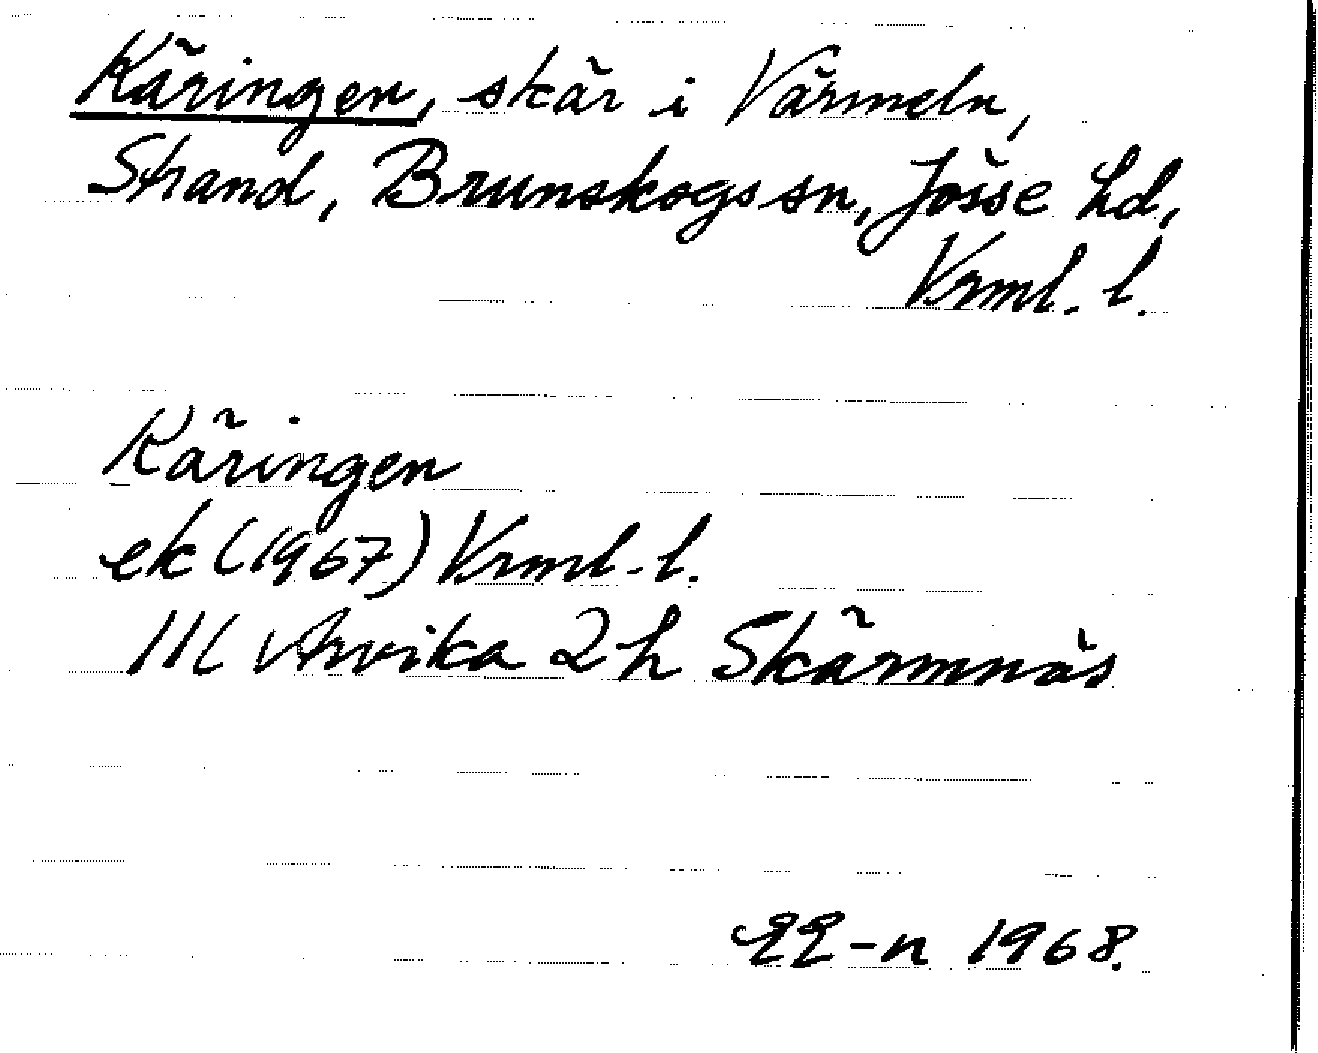 Käringen, skär i Värmeln,
Strand, Brunskogs sn, Jösse hd,
Vrml. l.
Käringen
ek (1967) Vrml. l.
11C Arvika 2h Skärmnäs
EE-n 1968.